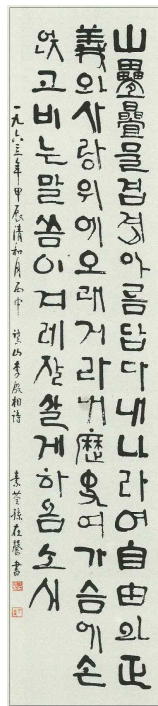 山疊疊물겹겹아름답다내나라여自由와正
義와사랑위에오래거라내歷史여가슴에손
얹고비는말씀이겨레잘살게하옵소서
一九六三年甲辰清和月丙申 鷺山李殷相詩 素荃孫在馨書